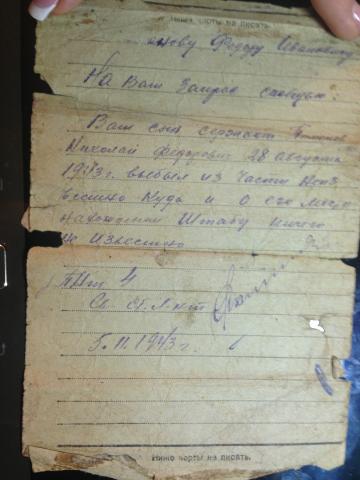 Ниже черты не писать.
Федору Ивановичу
На Ваш запрос сообщаю:
Ваш сын сержант
Николай Федорович 28 августа
1943 г. выбыл из части неиз
вестно куда и о его место
нахождении штабу ничего
не известно
ПНШ 4
Ст. Л-нт
5.11.1943 г.
Ниже черты не писать.